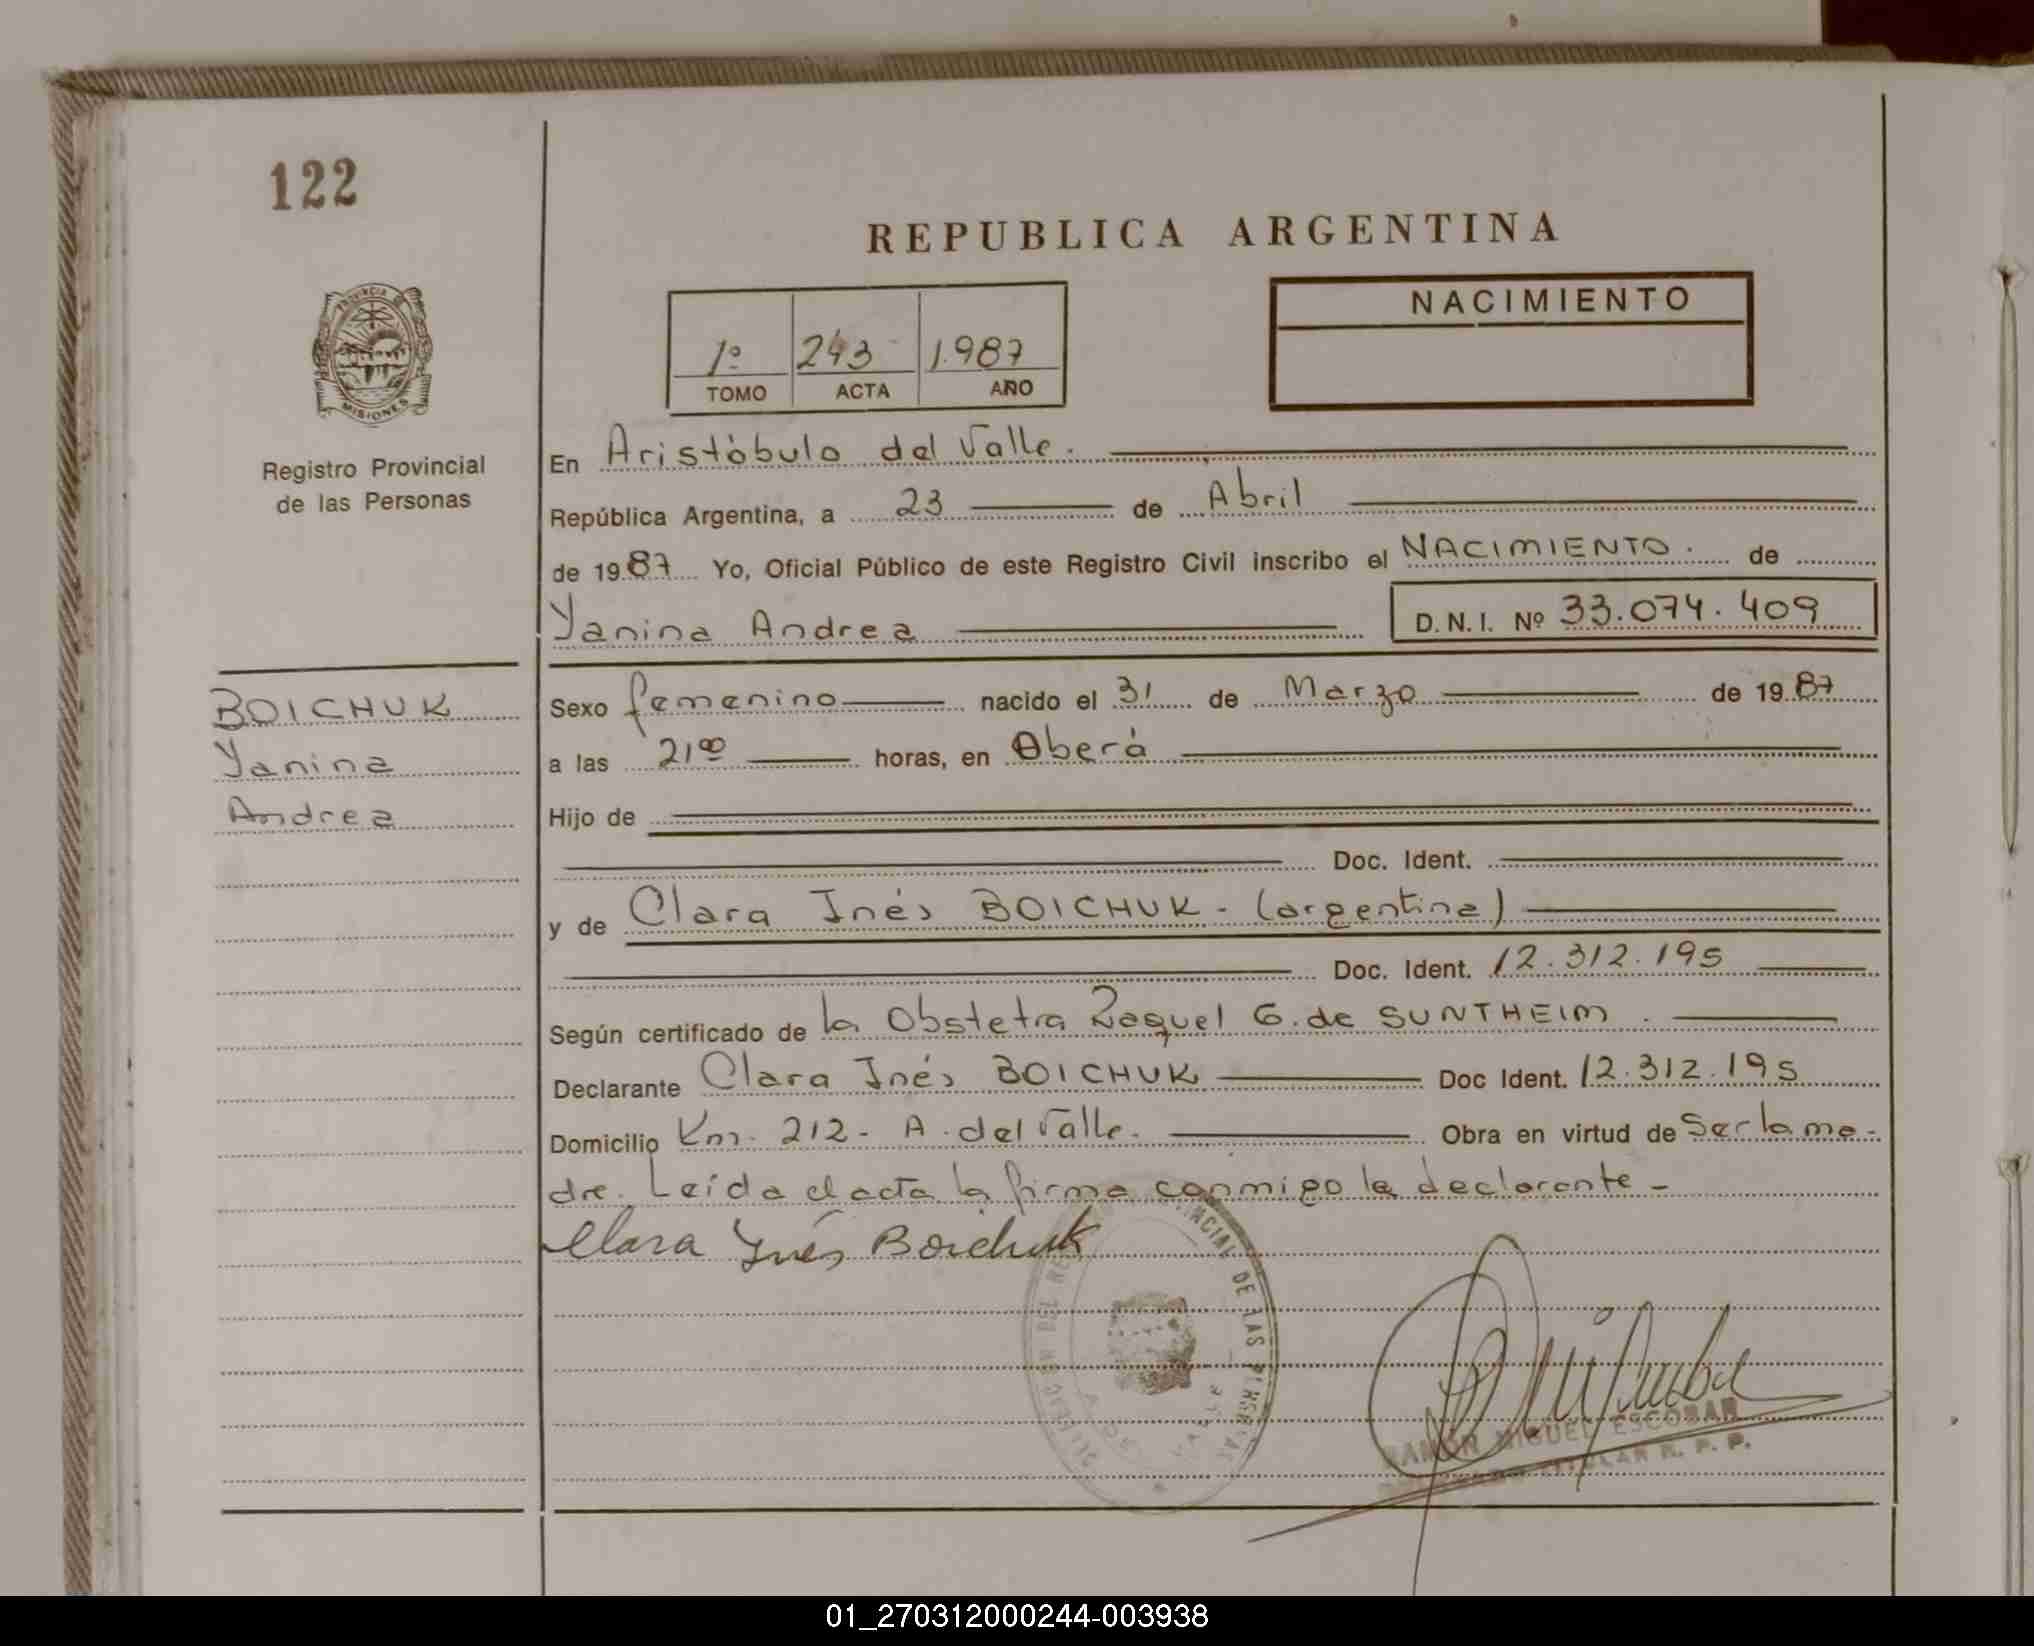 122
REPUBLICA ARGENTINA
PROVINCIA DE
MISIONES
Registro Provincial
de las Personas
1º 243 1.987
TOMO ACTA AÑO
NACIMIENTO
En Aristóbulo del Valle.
República Argentina, a 23 de Abril
de 1987 Yo, Oficial Público de este Registro Civil inscribo el NACIMIENTO. de
Yanina Andrea D.N.I. Nº 33.074.409
BOICHUK
Yanina
Andrea
Sexo femenino nacido el 31 de Marzo de 1987
a las 21⁰⁰ horas, en Oberá
Hijo de
Doc. Ident.
y de Clara Inés BOICHUK - (argentina)
Doc. Ident. 12.312.195
Según certificado de la Obstetra Raquel G. de SUNTHEIM.
Declarante Clara Inés BOICHUK Doc Ident. 12.312.195
Domicilio Km. 212- A. del Valle. Obra en virtud de Ser la ma-
dre. Leída el acta la firma conmigo la declarante -
Clara Inés Boichuk
DEL REGISTRO PROVINCIAL DE LAS PERSONAS
A. DEL VALLE
RAMON MIGUEL ESCOBAR
TITULAR R. P. P.
01_270312000244-003938